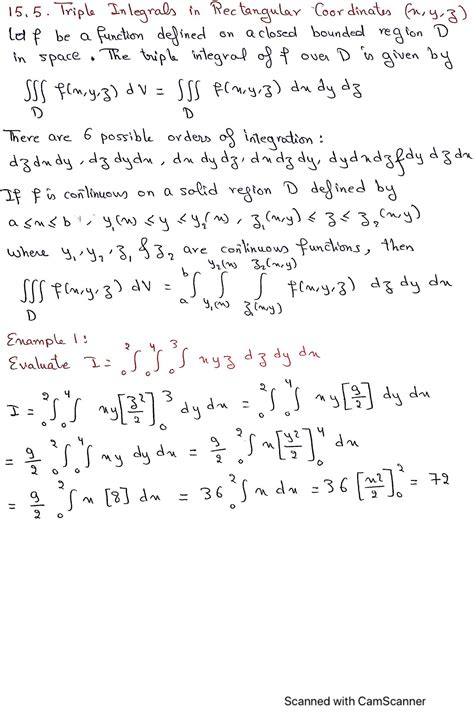 15.5. Triple Integrals in Rectangular Coordinates (x,y,z)
Let f be a function defined on a closed bounded region D
in space. The triple integral of f over D is given by
∭_D f(x,y,z) dV = ∭_D f(x,y,z) dx dy dz
There are 6 possible orders of integration:
dz dx dy, dz dy dx, dx dy dz, dx dz dy, dy dx dz & dy dz dx
If f is continuous on a solid region D defined by
a ≤ x ≤ b, y₁(x) ≤ y ≤ y₂(x), z₁(x,y) ≤ z ≤ z₂(x,y)
where y₁, y₂, z₁ & z₂ are continuous functions, then
∭_D f(x,y,z) dV = ∫_a^b ∫_{y₁(x)}^{y₂(x)} ∫_{z₁(x,y)}^{z₂(x,y)} f(x,y,z) dz dy dx
Example 1:
Evaluate I = ∫_0^2 ∫_0^4 ∫_0^3 xyz dz dy dx
I = ∫_0^2 ∫_0^4 xy[z²/2]_0^3 dy dx = ∫_0^2 ∫_0^4 xy[9/2] dy dx
= 9/2 ∫_0^2 ∫_0^4 xy dy dx = 9/2 ∫_0^2 x[y²/2]_0^4 dx
= 9/2 ∫_0^2 x[8] dx = 36 ∫_0^2 x dx = 36[x²/2]_0^2 = 72
Scanned with CamScanner